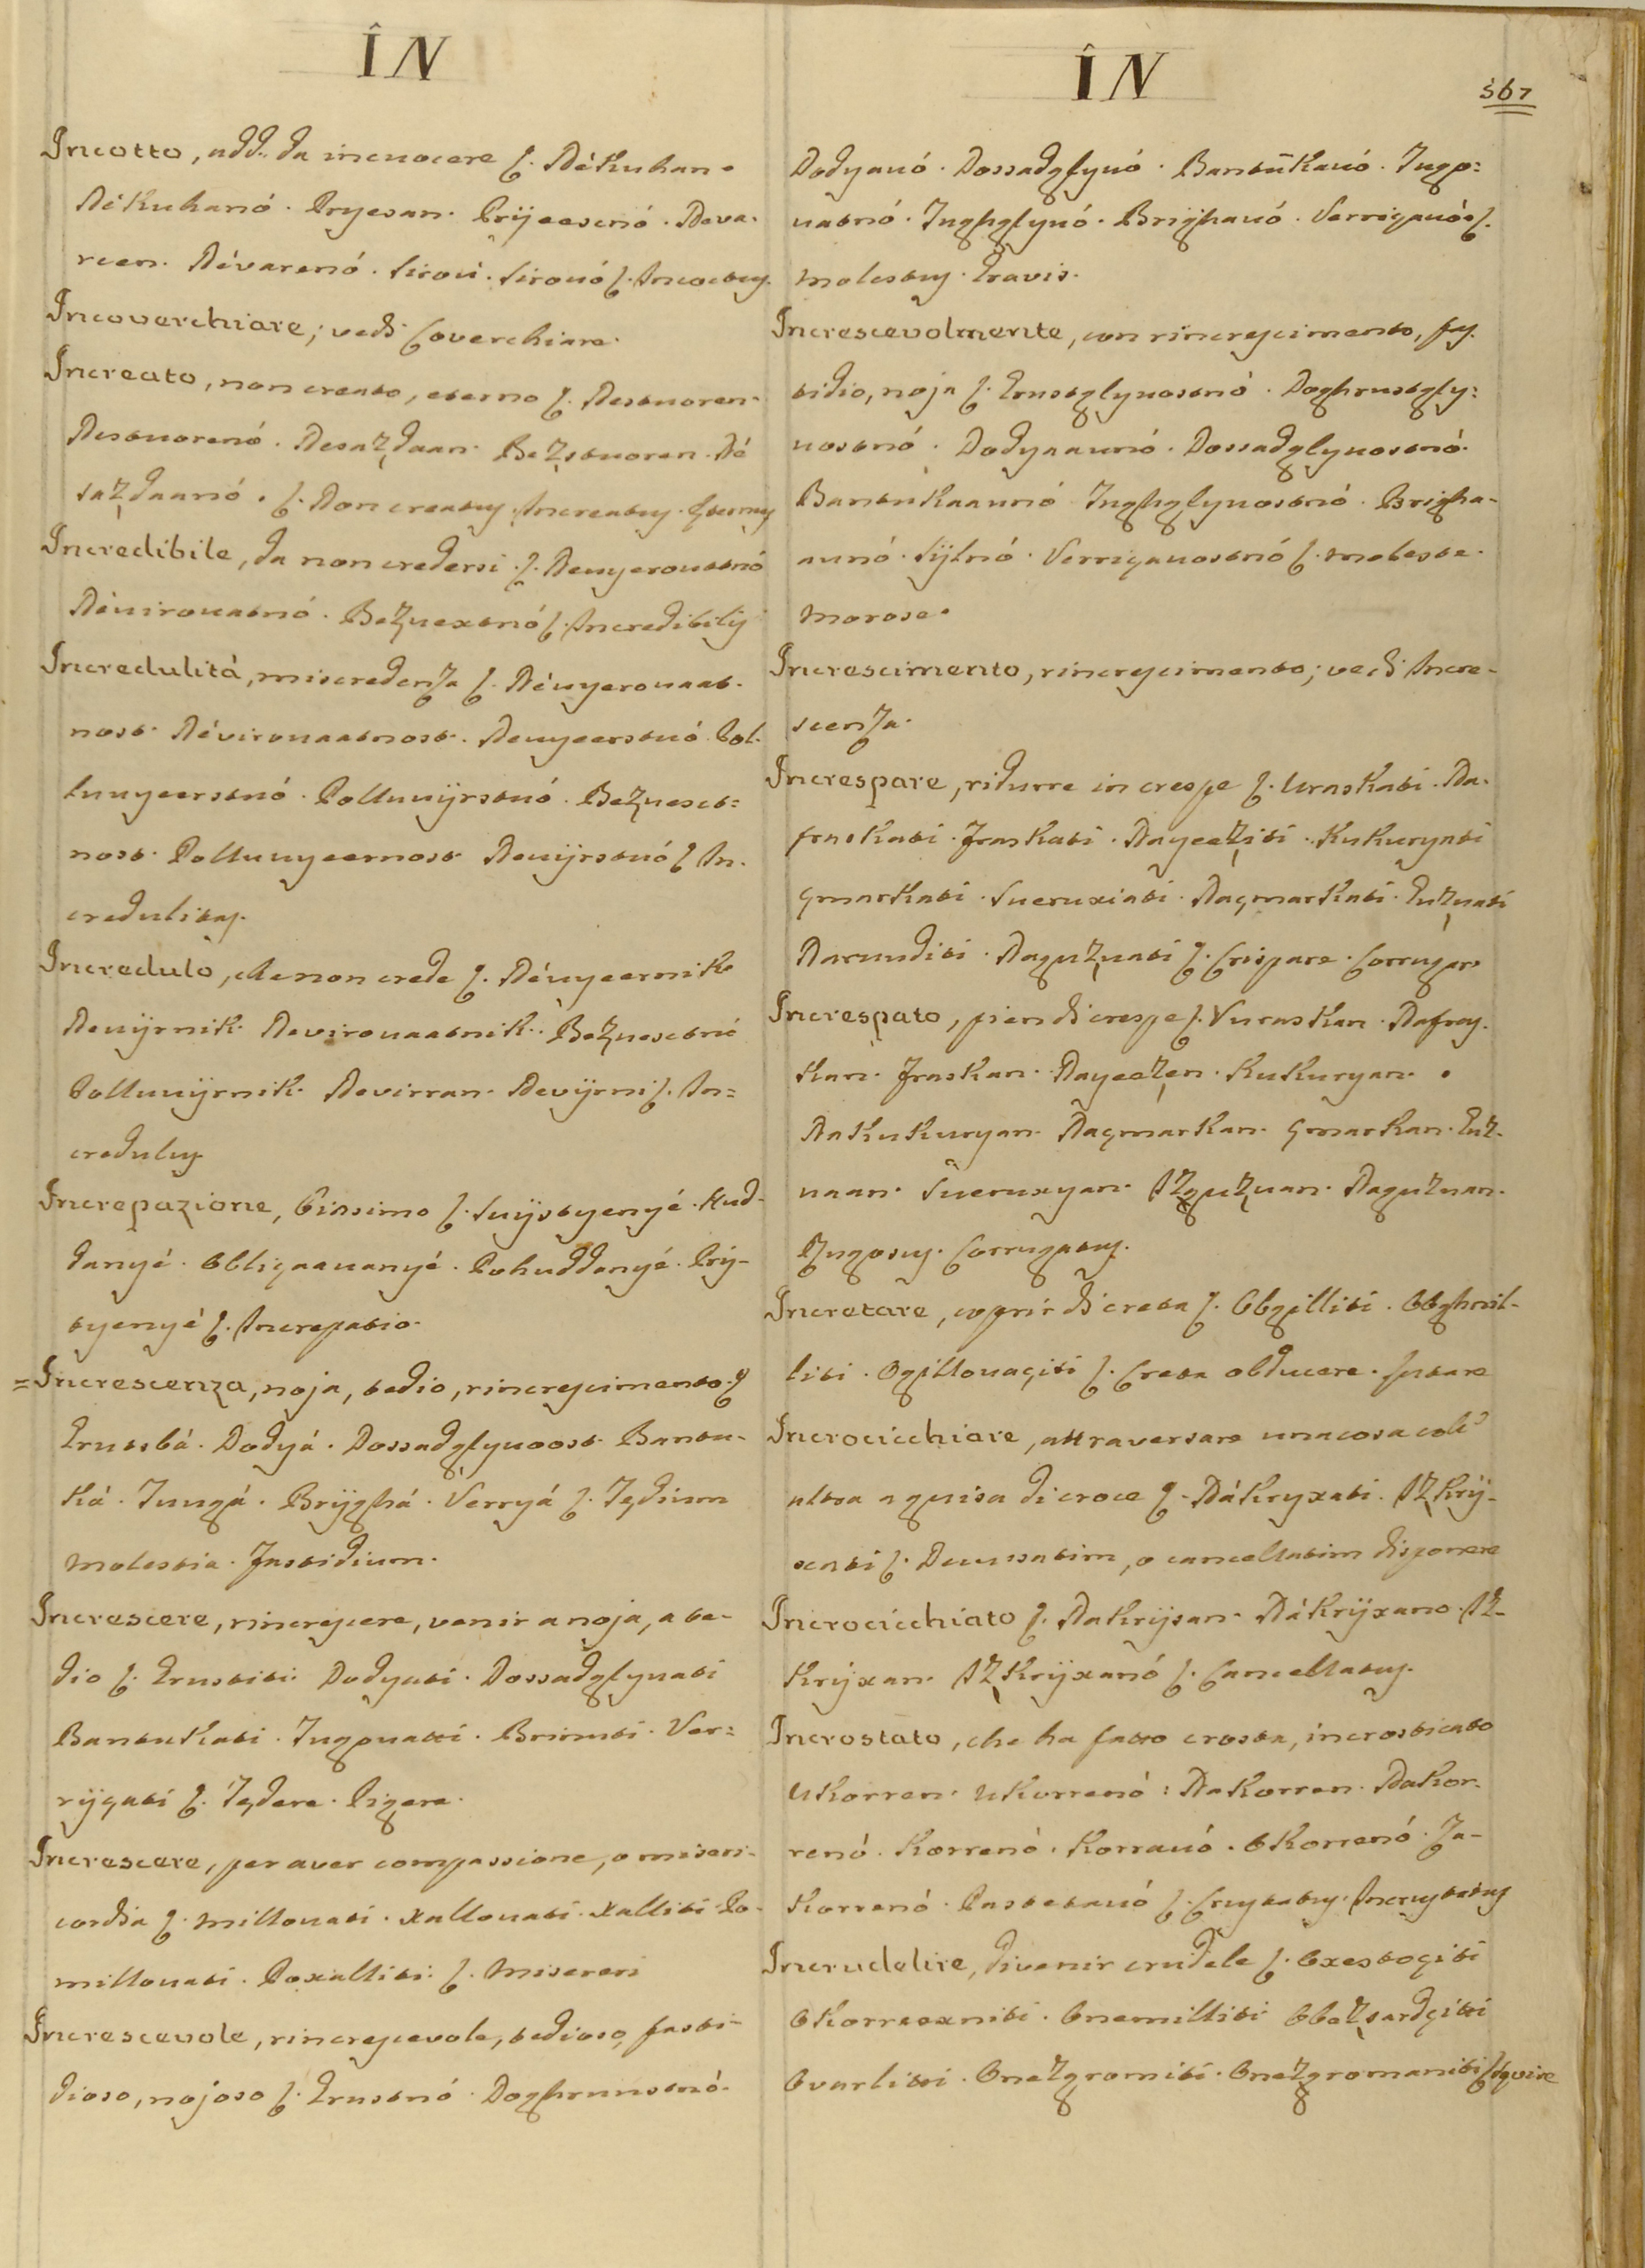 ÎN
Incotto, add. da incuocere ſ. Nékuhan.
Nékuhanó. Pryesan. Prijeesenó. Neva-
ren. Névarenó. Sirou. Sirouó ſ. Incoctus.
Incoverchiare; vedi Coverchiare.
Increato, non creato, eterno ſ. Nestuoren.
Nestuorenó. Nesazdaan. Bezstuoren. Né
sazdaanó. ſ. Non creatus. Increatus. Eternus
Incredibile, da non credersi. ſ. Neuyerouatnó
Néuirouatnó. Bezuextnó ſ. Incredibilis
Incredulità, miscredenza ſ. Néuyerouaat-
nost. Névirouaatnost. Neuyeerstuó. Pol-
luuyeerstuó. Polluuijrstuó. Bezuest-
nost. Polluuyeernost. Neuijrstuó ſ. In-
credulitas.
Incredulo, che non crede ſ. Néuyeernik
Neuijrnik. Nevirouaatnik. Bezuestnó
Polluuijrnik. Nevirran. Nevijrni ſ. In=
credulus
Increpazione, Biasimo ſ. Suijdtyenyé. Hud-
danyé. Obligaauanyé. Pohuddanyé. Prij-
tyenyé ſ. Increpatio.
=Increscenza, noja, tedio, rincrescimento ſ
Grustbá. Dodyá. Dossadglyuoost. Bantu-
ká. Tuugá. Brijghá. Verryá ſ. Tędium
Molestia. Fastidium.
Increscere, rincrescere, venir a noja, a te-
dio ſ. Grustiti. Dodyati. Dossadglyuati
Bantukati. Tugouatti. Brinuti. Ver=
rijgati ſ. Tędere. Pigere.
Increscere, per aver compassione, o miseri-
cordia ſ. Millouati. Xallouati. Xalliti. Po-
millouati. Poxalliti. ſ. Misereri
Increscevole, rincrescevole, tedioso, fasti-
dioso, nojoso ſ. Grustnó. Doghrunstnó.
ÎN
567
Dodyauó. Dossadglyuó. Bantukauó. Tugo=
uatnó. Tughglyuó. Brijghauó. Verrigauó ſ.
Molestus. Gravis.
Increscevolmente, con rincrescimento, fas-
tidio, noja ſ. Grustglyuostnó. Doghrustgly=
uostnó. Dodyaaunó. Dossadglyuostnó.
Bantukaaunó. Tughglyuostnó. Brigha-
aunó. Sijlnó. Verrigauostnó ſ. Moleste.
Morose.
Increscimento, rincrescimento; vedi Incre-
scenza.
Increspare, ridurre in crespe ſ. Uraskati. Na-
fraskati. Fraskati. Nayeeziti. Kukuryati
Gmarkati. Sueruxiati. Nagmarkati. Guzuati
Naruuditi. Naguzuati ſ. Crispare. Corrugare
Increspato, pien di crespe ſ. Vuraskan. Nafras-
kan. Fraskan. Nayeezen. Kukuryan.
Nakukuryan. Nagmarkan. Gmarkan. Guz-
uaan. Sueruxyan. Izguzuan. Naguzuan.
Rugosus. Corrugatus.
Incretare, coprir di creta ſ. Obgilliti. Obghnil-
liti. Ogillouaçiti ſ. Creta obducere. Lutare
Incrocicchiare, attraversare una cosa coll'
altra a guisa di croce ſ. Nákryxati. Izkrij-
xati ſ. Decussatim, o cancellatim disponere
Incrocicchiato ſ. Nakrijsan. Nákrijxano. Iz-
krijxan. Izkrijxanó ſ. Cancellatus.
Incrostato, che ha fatto crosta, incrosticato
Ukorren. Ukorrenó. Nakorren. Nakor-
renó. Korrenó. Korrauó. Okorrenó. Za-
korrenó. Pastetauó ſ. Crustatus. Incrustatus
Incrudelire, divenir crudele ſ. Oxestoçiti
Okorraxniti. Onemilliti. Obezsardçiti
Ovarliti. Onezgromiti. Onezgromaniti ſ Sęvire